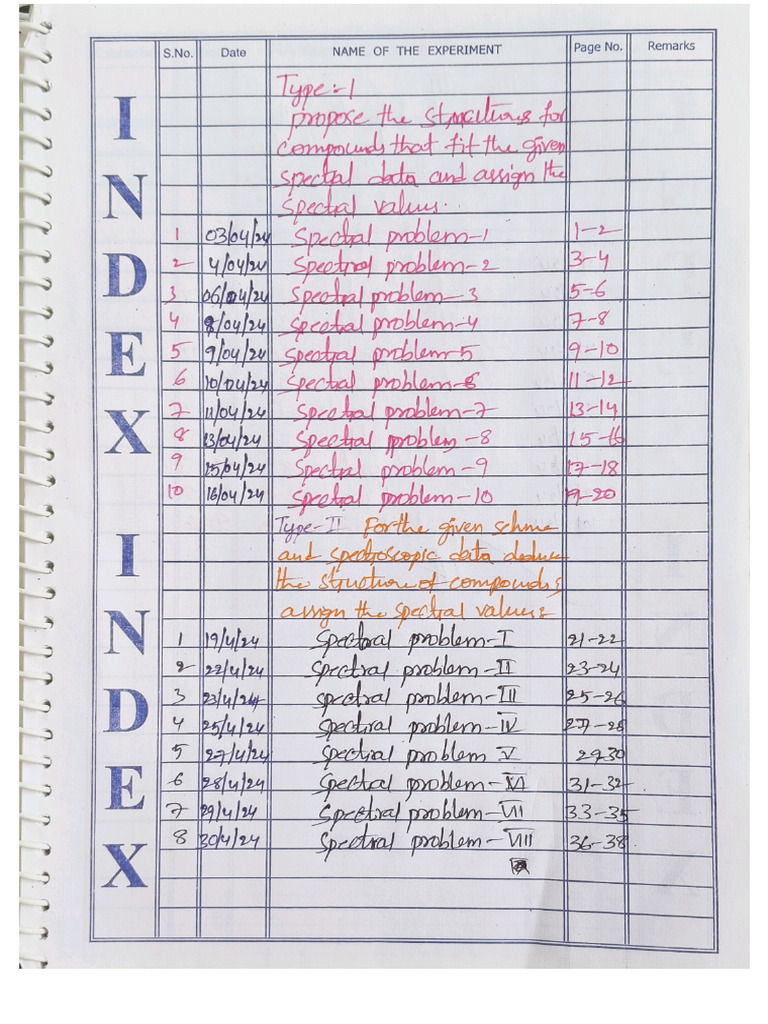 INDEX INDEX
S.No. Date NAME OF THE EXPERIMENT Page No. Remarks
Type:-1
propose the structions for
compounds that fit the given
spectral data and assign the
spectral values.
1 03/04/24 Spectral problem-1 1-2
2 4/04/24 Spectral problem-2 3-4
3 06/04/24 Spectral problem-3 5-6
4 8/04/24 Spectral problem-4 7-8
5 9/04/24 Spectral problem-5 9-10
6 10/04/24 Spectral problem-6 11-12
7 11/04/24 Spectral problem-7 13-14
8 13/04/24 Spectral problem-8 15-16
9 15/04/24 Spectral problem-9 17-18
10 16/04/24 Spectral problem-10 19-20
Type-II For the given scheme
and spectroscopic data deduce
the structure of compounds,
assign the spectral values:
1 19/4/24 Spectral problem-I 21-22
2 22/4/24 Spectral problem-II 23-24
3 23/4/24 spectral problem-III 25-26
4 25/4/24 Spectral problem-IV 27-28
5 27/4/24 Spectral problem V 29-30
6 28/4/24 Spectral problem-VI 31-32
7 29/4/24 Spectral problem-VII 33-35
8 30/4/24 Spectral problem-VIII 36-38.